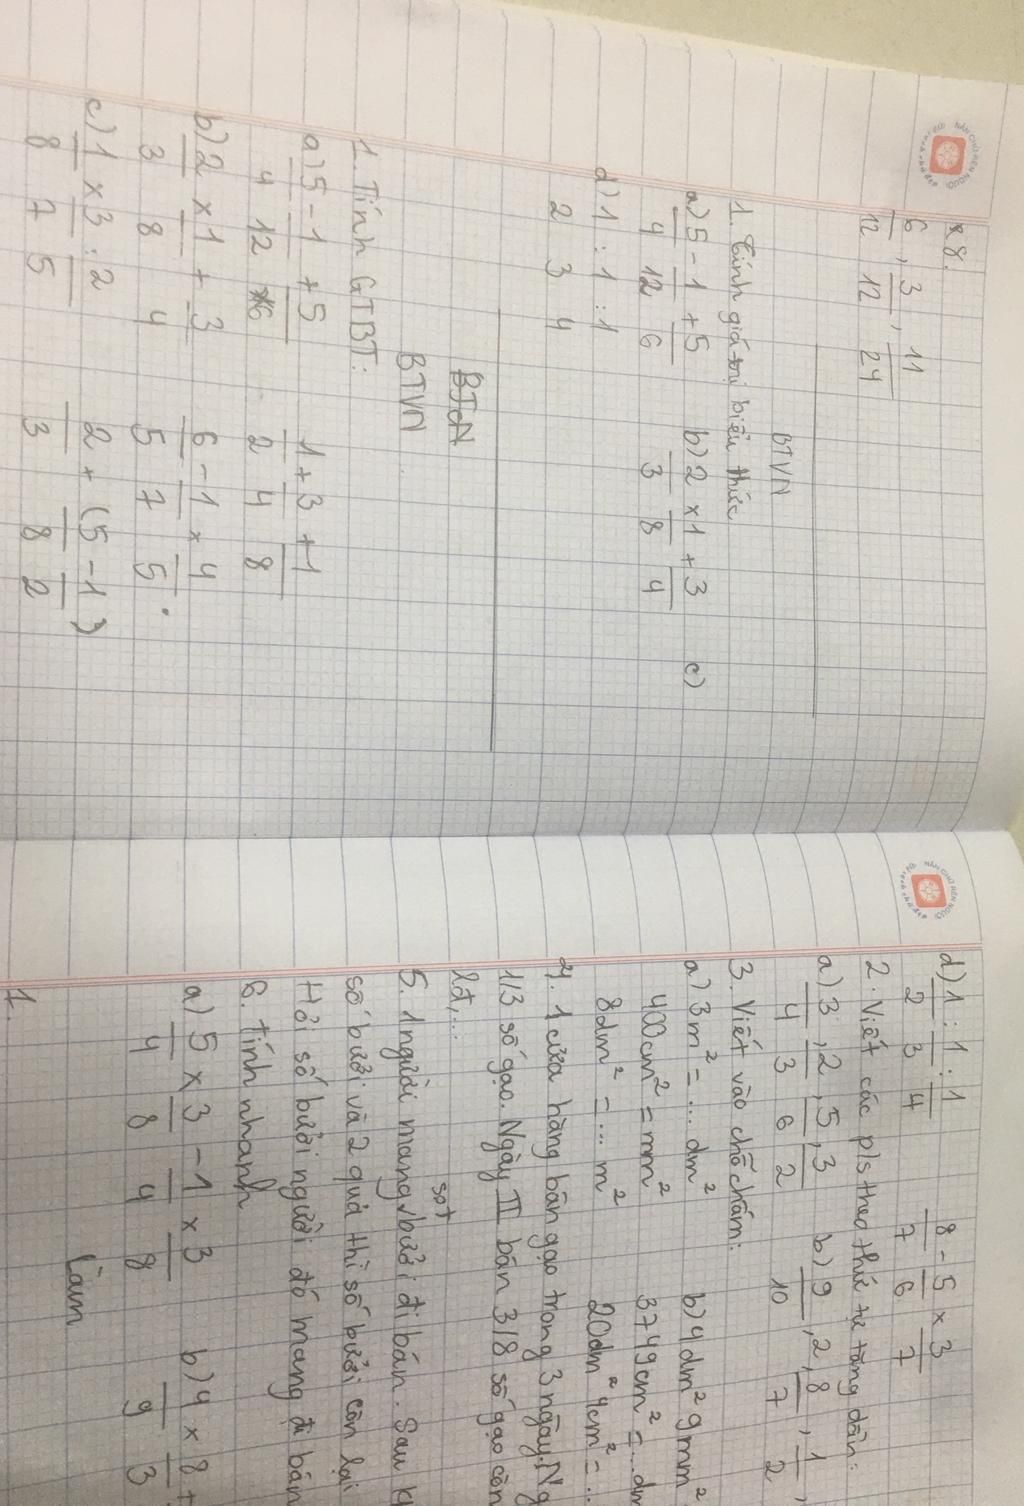 x 8.
6/12, 3/12, 11/24
BTVN
1. Tính giá trị biểu thức
a) 5/4 - 1/12 + 5/6 b) 2/3 x 1/8 + 3/4 c)
d) 1/2 : 1/3 : 1/4
BTCN
BTVN
1. Tính GTBT:
a) 5/4 - 1/12 + 5/6 1/2 + 3/4 + 1/8
b) 2/3 x 1/8 + 3/4 6/5 - 1/7 x 4/5.
c) 1/8 x 3/7 : 2/5 2/3 + (5/8 - 1/2)
d) 1/2 : 1/3 : 1/4 8/7 - 5/6 x 3/7
2. Viết các p/s theo thứ tự tăng dần:
a) 3/4, 2/3, 5/6, 3/2 b) 9/10, 2, 8/7, 1/2,
3. Viết vào chỗ chấm:
a) 3m² = ... dm² b) 4dm² 9mm²
400cm² = mm² 3749cm² = ... dm
8dm² = ... m² 20dm² 4cm² = ...
4. 1 cửa hàng bán gạo trong 3 ngày. Ng
1/3 số gạo. Ngày II bán 3/8 số gạo còn
lđ, ...
sọt
5. 1 người mang bưởi đi bán. Sau k
số bưởi và 2 quả thì số bưởi còn lại
Hỏi số bưởi người đó mang đi bán
6. tính nhanh
a) 5/4 x 3/8 - 1/4 x 3/8 b) 4/9 x 8/3 +
Làm
1.
NẮN CHỮ RÈN NGƯỜI